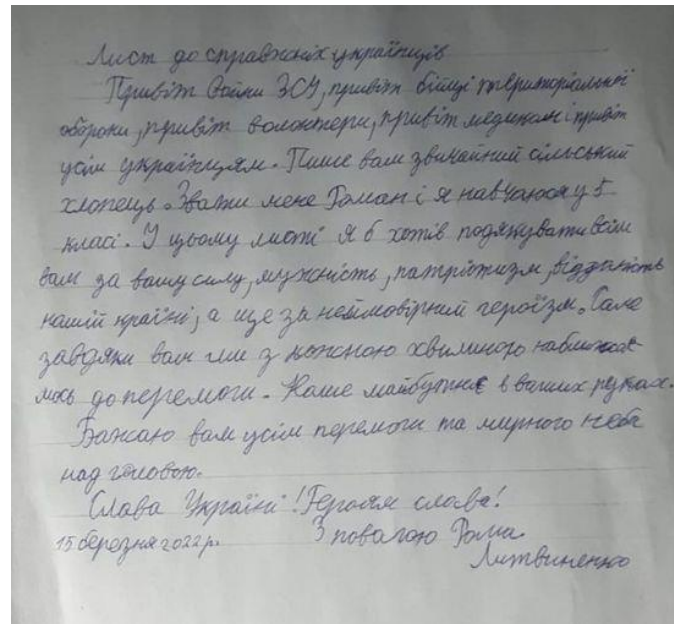 Лист до справжніх українців
Привіт Воїни ЗСУ, привіт бійці територіальної
оборони, привіт волонтери, привіт медикам і привіт
усім українцям. Пише вам звичайний сільський
хлопець. Звати мене Роман і я навчаюся у 5
класі. У цьому листі я б хотів подякувати всім
вам за вашу силу, мужність, патріотизм, відданість
нашій країні, а ще за неймовірний героїзм. Саме
завдяки вам ми з кожною хвилиною наближає
мось до перемоги. Наше майбутнє в ваших руках.
Бажаю вам усім перемоги та мирного неба
над головою.
Слава Україні! Героям слава!
15 березня 2022 р. З повагою Рома
Литвиненко